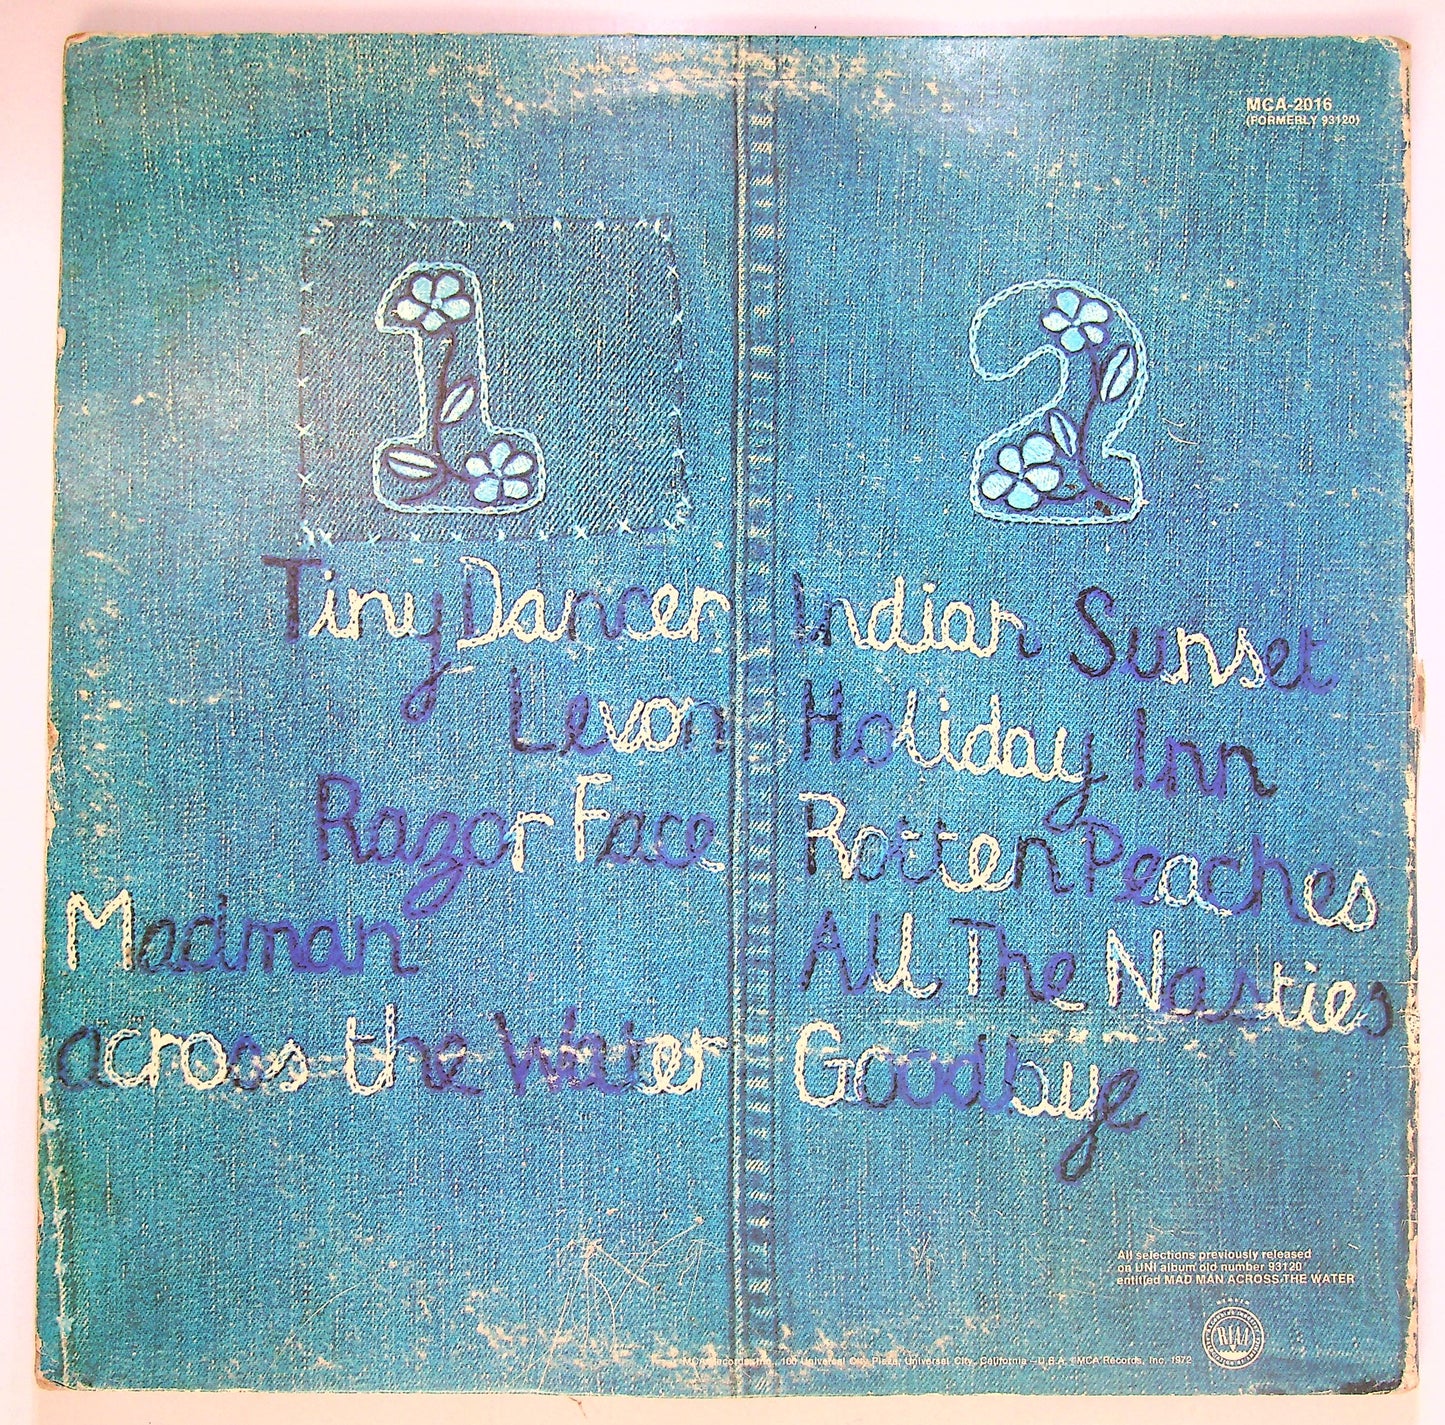 MCA-2016
(FORMERLY 93120)
1
Tiny Dancer
Levon
Razor Face
Madman
across the Water
2
Indian Sunset
Holiday Inn
Rotten Peaches
All The Nasties
Goodbye
All selections previously released
on UNI album old number 93120
entitled MAD MAN ACROSS THE WATER
RIAA
MCA Records, Inc., 100 Universal City Plaza, Universal City, California – U.S.A. ©MCA Records, Inc. 1972